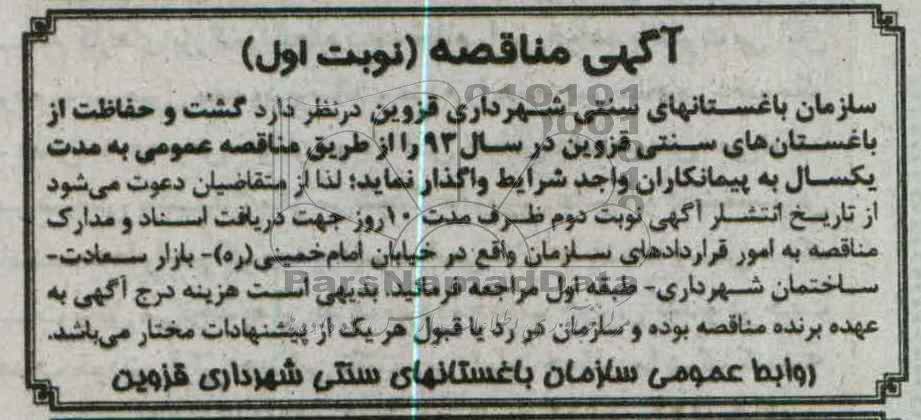 آگهی مناقصه (نوبت اول)
سازمان باغستانهای سنتی شهرداری قزوین درنظر دارد گشت و حفاظت از
باغستان‌های سنتی قزوین در سال ۹۳ را از طریق مناقصه عمومی به مدت
یکسال به پیمانکاران واجد شرایط واگذار نماید؛ لذا از متقاضیان دعوت می‌شود
از تاریخ انتشار آگهی نوبت دوم ظرف مدت ۱۰ روز جهت دریافت اسناد و مدارک
مناقصه به امور قراردادهای سازمان واقع در خیابان امام‌خمینی(ره)- بازار سعادت-
ساختمان شهرداری- طبقه اول مراجعه فرمائید. بدیهی است هزینه درج آگهی به
عهده برنده مناقصه بوده و سازمان در رد یا قبول هر یک از پیشنهادات مختار می‌باشد.
روابط عمومی سازمان باغستانهای سنتی شهرداری قزوین
ParsNamadData